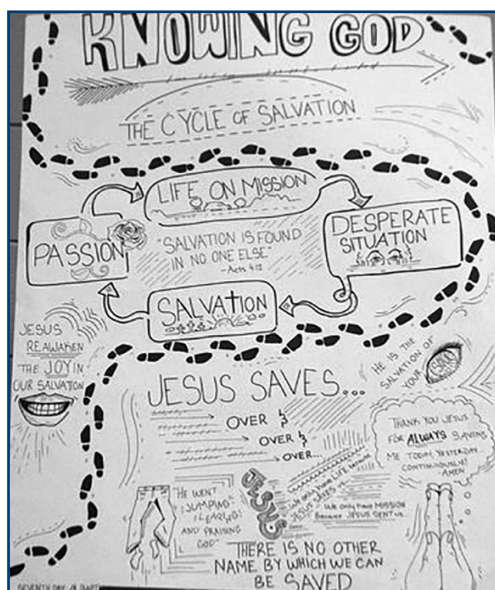 KNOWING GOD
THE CYCLE OF SALVATION
LIFE ON MISSION
PASSION
"SALVATION IS FOUND
IN NO ONE ELSE"
-Acts 4:12
DESPERATE
SITUATION
SALVATION
JESUS
REAWAKEN
THE JOY IN
OUR SALVATION
HE IS THE
SALVATION OF
YOUR
JESUS SAVES...
OVER &
OVER &
OVER...
THANK YOU JESUS
FOR ALWAYS SAVING
ME TODAY, YESTERDAY
CONTINUOUSLY!
-AMEN
"HE WENT
JUMPING
LEAPING
AND PRAISING
GOD"
JESUS
We only have MISSION
Because JESUS SENT us.
THERE IS NO OTHER
NAME BY WHICH WE CAN
BE SAVED
SEVENTH DAY